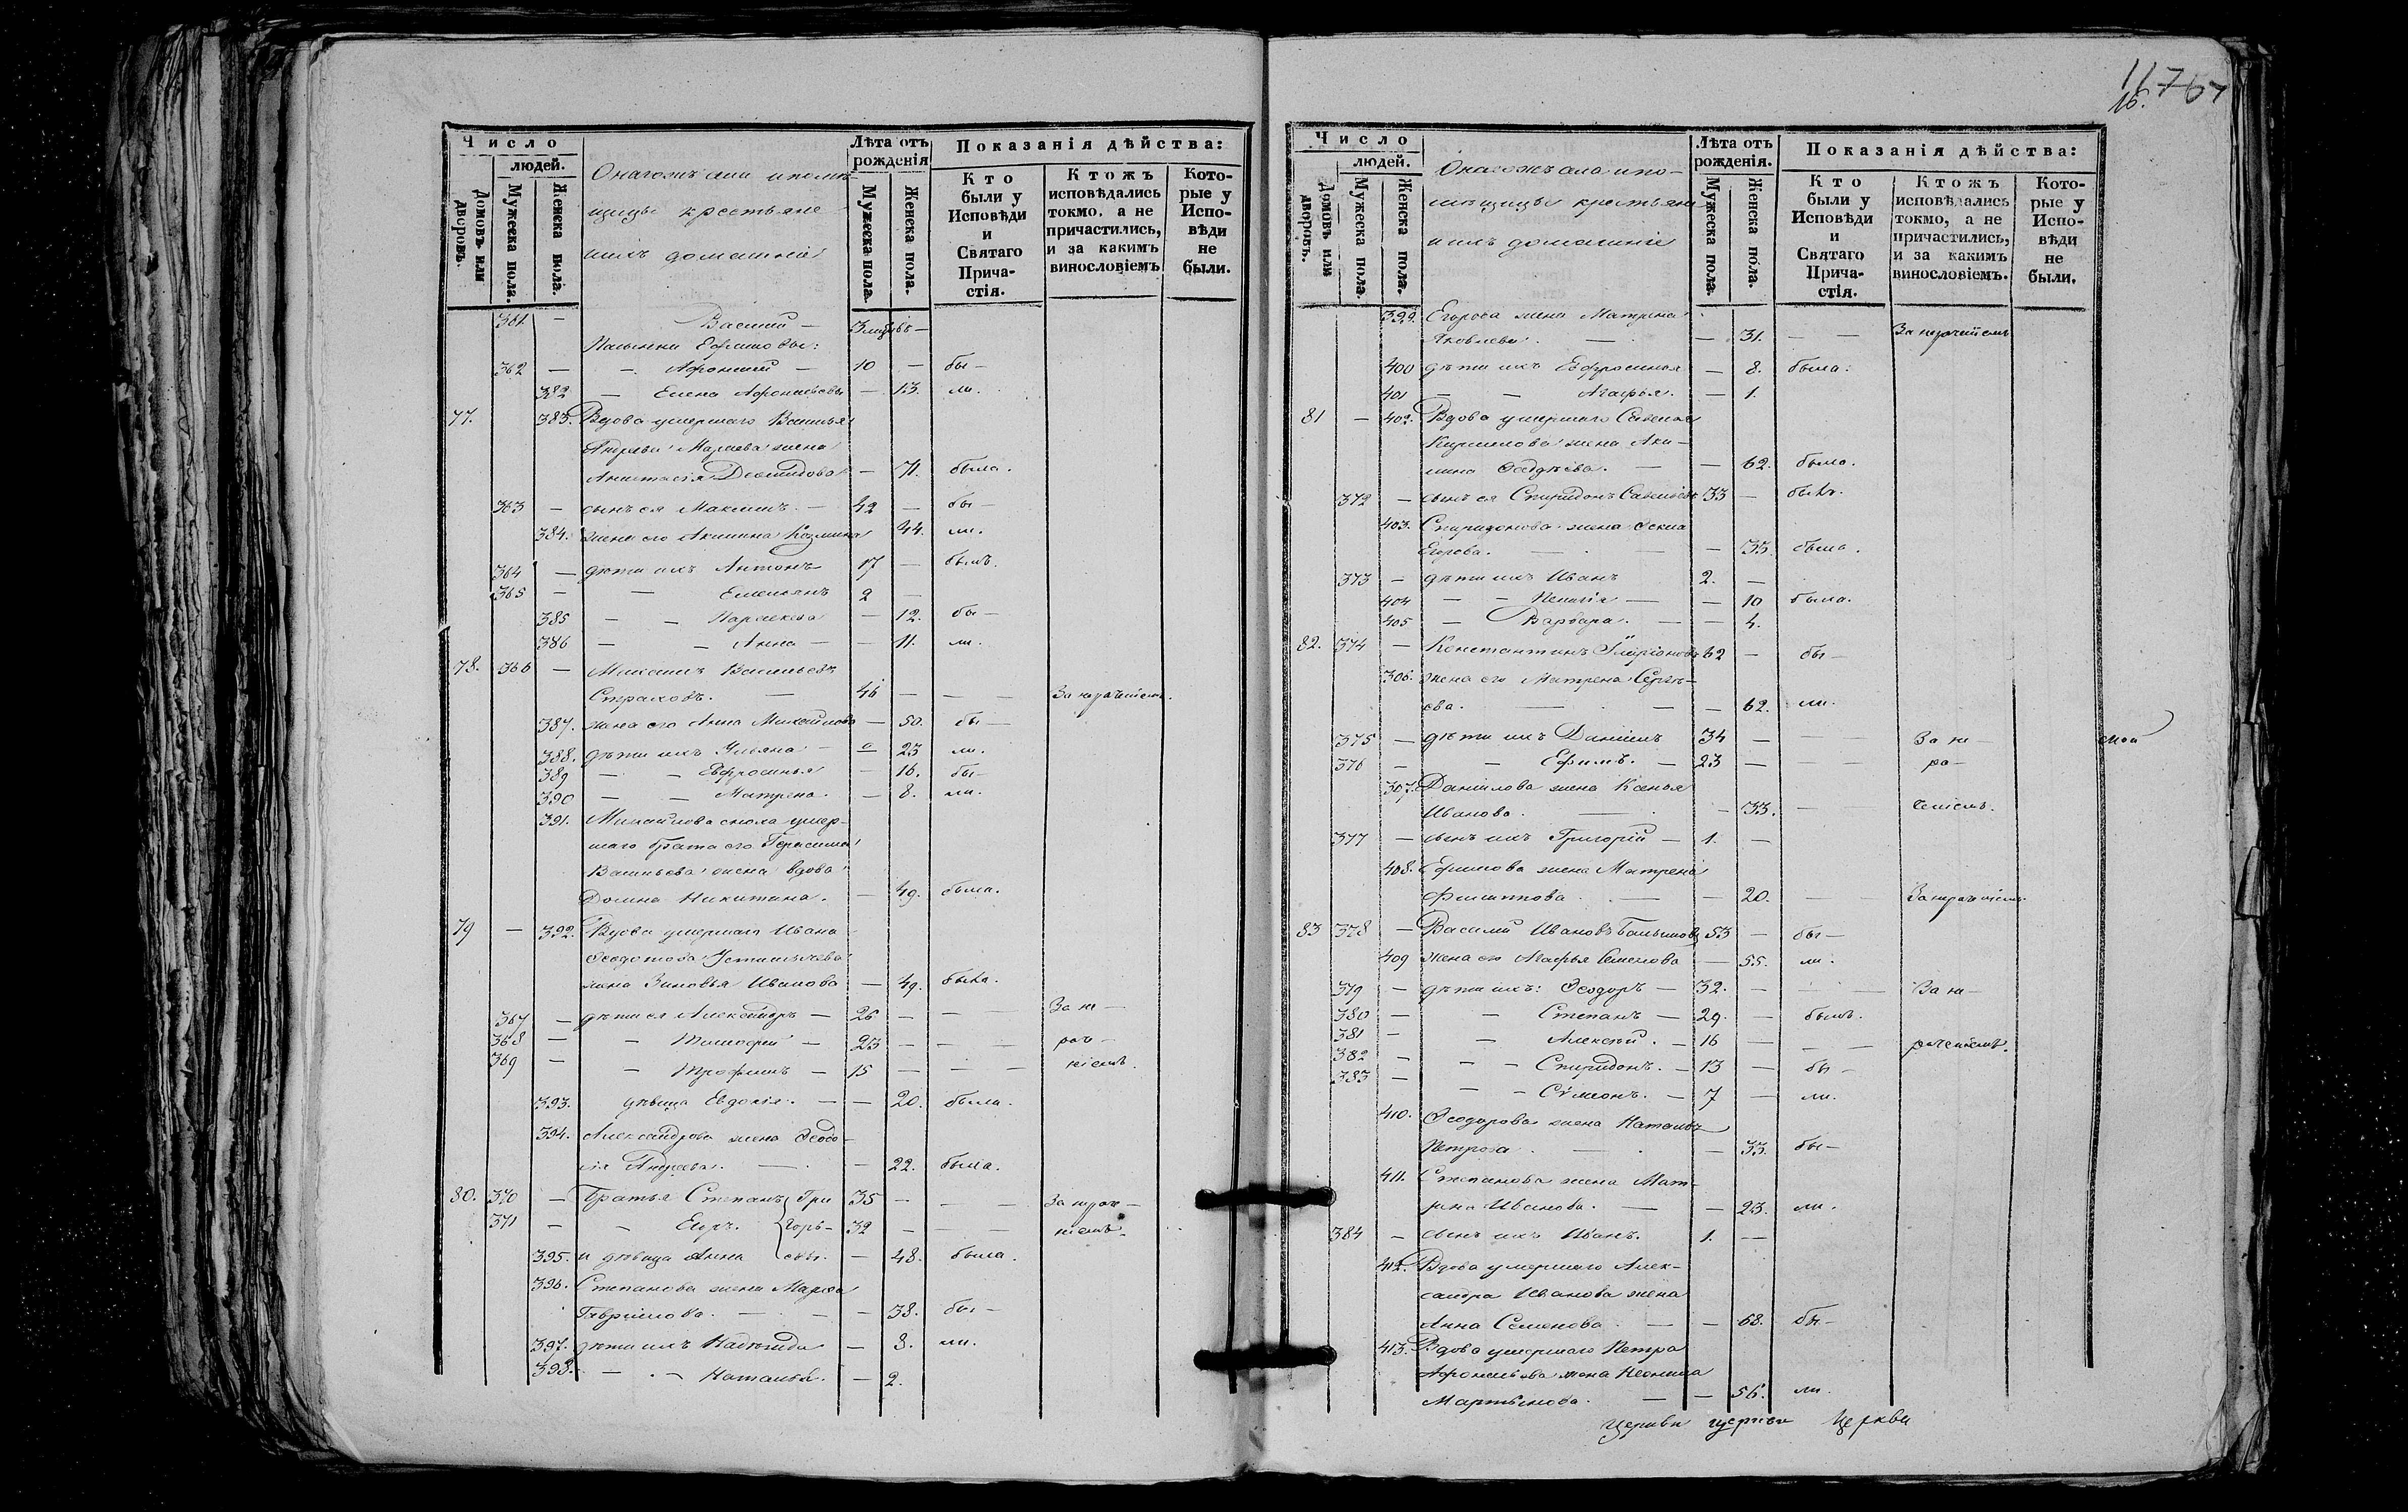 Число
людей.
Домовъ или дворовъ.
Мужеска пола.
Женска пола.
Онагожъ села и помѣ-
щицы крестьяне
ихъ домашніе
Лѣта отъ рожденія
Мужеска пола.
Женска пола.
Показанія дѣйства:
Кто были у Исповѣди и Святаго Прича-стія.
Ктожъ исповѣдались токмо, а не причастились, и за какимъ винословіемъ
Кото-рые у Испо-вѣди не были.
361. — Василій —
Ефимовы:
362 — — 10 — бы —
382 — Елена — 13. ли.
77. 383. Вдова умершаго Василья
жена
Анастасія — 71. была.
363 — сынъ ея Максимъ. — 42 — бы —
384. жена его Акилина Козмина 44. ли.
364 — дѣти ихъ Антонъ 17 — былъ.
365 — — Емельянъ 2 —
385 — — Параскева — 12. бы —
386 — — Анна — — 11. ли.
78. 366 — Михаилъ Васильевъ
Страховъ. — 46 — — За нераченіемъ.
387. жена его Анна Михайлова — 50. бы —
388. дѣти ихъ Ульяна — 23 ли.
389 — — Евфросинья — 16. бы —
390 — — Матрена. — 8. ли.
391. Михайлова сноха умер-
шаго брата его Герасима
Васильева жена вдова
Домна Никитина. — 49. была.
79 — 392. Вдова умершаго Ивана
Ѳеодотова
жена Зиновья Иванова — 49. была.
367 — дѣти ея Александръ — 26 — — За не —
368 — — Тимофей — 23 — — — раче —
369 — — Трофимъ — 15 — — — ніемъ.
393. дѣвица Евдокія. — — 20. была.
394. Александрова жена Ѳеодо-
сія Андреева. — — 22. была.
80. 370 — Братья Степанъ Гри 35 — — — За нераче —
371 — — Егоръ. горь- 32 — — ніемъ.
395. и дѣвица Анна евы. — 48. была.
396. Степанова жена Марѳа
Гаврилова. — — — 38. бы —
397. дѣти ихъ Надежда — 8. ли.
398. — — Наталья. — 2.
11767
16.
Число
людей.
Домовъ или дворовъ.
Мужеска пола.
Женска пола.
Онагожъ села и по-
мѣщицы крестьяне
и ихъ домашніе
Лѣта отъ рожденія.
Мужеска пола.
Женска пола.
Показанія дѣйства:
Кто были у Исповѣди и Святаго Прича-стія.
Ктожъ исповѣдались токмо, а не причастились, и за какимъ винословіемъ.
Кото-рые у Испо-вѣди не были.
399. Егорова жена Матрена
Яковлева. — — 31. — — За нераченіемъ
400 дѣти ихъ Евфросинья — 8. была.
401 — — Агафья. — 1.
81 — 402. Вдова умершаго Савелья
Кирилова жена Аки-
лина Ѳаддѣева. — — 62. была.
372 — сынъ ея Спиридонъ Савельевъ 33 — былъ.
403. Спиридонова жена Ѳекла
Егорова. — — — 35. была.
373 — дѣти ихъ Иванъ 2. —
404 — — Пелагія — — 10 была.
405 — Варвара. — — 4.
82. 374 — Константинъ 62 — бы —
306. жена его Матрена Сергѣ-
ева. — — — 62. ли.
375 — дѣти ихъ Даніилъ 34 — — За не —
376 — — Ефимъ. — 23 — — ра —
307. Данилова жена Ксенья
Иванова. — — 33. — — ченіемъ.
377 — сынъ ихъ Григорій — 1. —
408. Ефимова жена Матрена
Филиппова. — — 20. — — За нераченіемъ
83 378 — Василій Ивановъ 53 — бы —
409 жена его Агафья Семенова — 55. ли.
379 — дѣти ихъ: Ѳеодоръ — 32. — — — За не —
380 — — Степанъ — 29. — былъ.
381 — — Алексѣй. — 16 — — — раченіемъ.
382 — — — Спиридонъ. — 13 — бы —
383 — — — Сѵмеонъ. — 7 — ли.
410. Ѳеодорова жена Наталья
Петрова. — — 33. бы —
411. Степанова жена Мат-
рена Иванова. — — 23. ли.
384 — сынъ ихъ Иванъ. 1. —
412. Вдова умершаго Алек-
сандра Иванова жена
Анна Семенова. — — 68. бы —
413. Вдова умершаго Петра
жена Неонила
Мартынова. — — 56. ли.
Церкви церкви Церкви